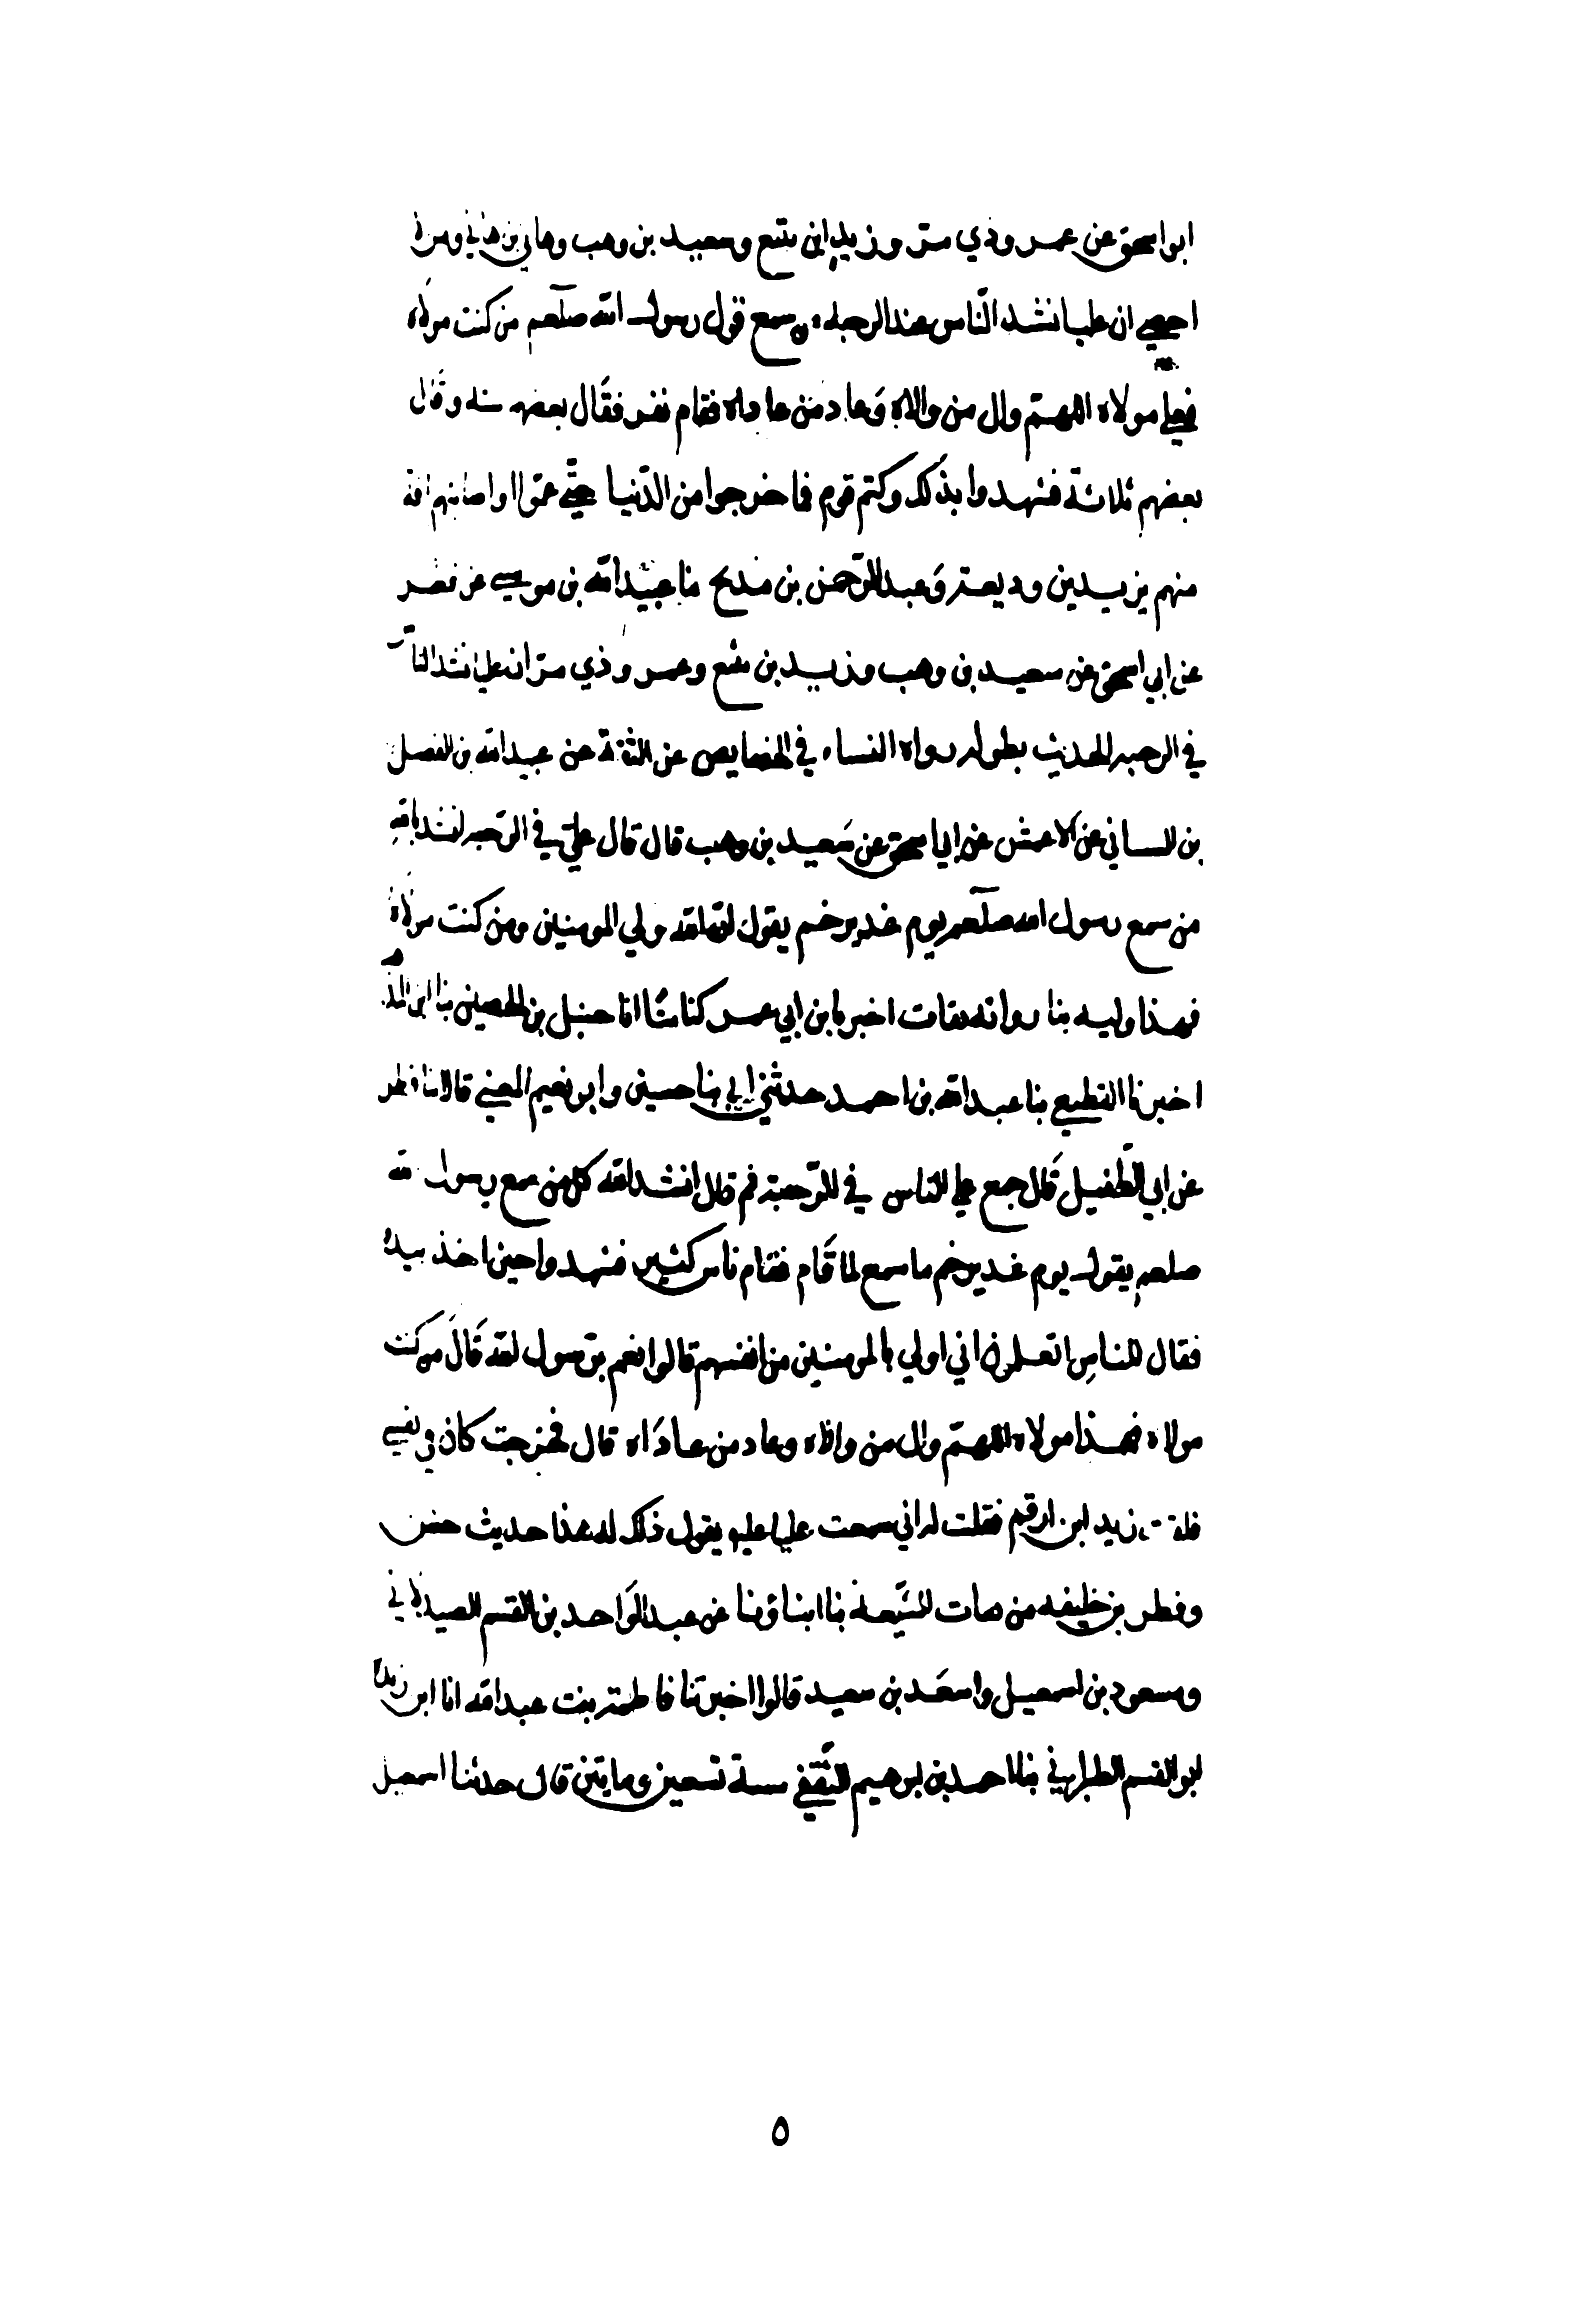 ابو اسحق عن عمرو ذي مر وزيد ابن يثيع وسعيد بن وهب وهاني بن هاني
ان عليا نشد الناس عند الرحبه من سمع قول رسول الله صلعم من كنت مولاه
فعلي مولاه اللهم وال من والاه وعاد من عاداه فقام نفر فقال بعضهم سته وقال
بعضهم ثلاثة فشهدوا بذلك وكتم قوم فما خرجوا من الدنيا حتى عموا او اصابتهم افة
منهم يزيد بن وديعة وعبد الرحمن بن مدلج نا عبيد الله بن موسى عن فطر
عن ابي اسحق عن سعيد بن وهب وزيد بن يثيع وعمرو ذي مر ان علي انشد الناس
في الرحبه الحديث بطوله رواه النساء في الخصايص عن الثقة عن عبيد الله بن الفضل
بن عن الاعمش عن ابي اسحق عن سعيد بن وهب قال قال علي في الرحبه انشد بالله
من سمع رسول الله صلعم يوم غدير خم يقول الله ولي المومنين ومن كنت مولاه
فهذا وليه اخبرنا بن ابي عمر كتابتا انا حنبل بن الحصين نا ابن المذهب
اخبرنا القطيعي نا عبد الله بن احمد حدثني ابي نا حسين وابو نعيم المعني قالا نا فطر
عن ابي الطفيل قال جمع علي الناس في الرحبة ثم قال انشد الله كل من سمع رسول الله
صلعم يقول يوم غدير خم ما سمع لما قام فقام ناس كثير فشهدوا حين اخذ بيده
فقال للناس اتعلمون اني اولى بالمومنين من انفسهم قالوا نعم يرسول الله قال من كنت
مولاه فهذا مولاه اللهم وال من والاه وعاد من عاداه قال فخرجت كان في نفسي
زيد ابن ارقم فقلت له اني سمعت عليا عليه يقول ذلك له هذا حديث حسن
وفطر بن خليفه من الشيعة نا ابناؤنا عن عبد الواحد بن القسم الصيدلاني
ومسعود بن اسمعيل واسعد بن سعيد قالوا اخبرتنا فاطمة بنت عبد الله انا ابن ريذة
ابو القسم الطبراني نا احمد بن ابرهيم الثقفي سنة تسعين ومايتين قال حدثنا اسمعيل
٥